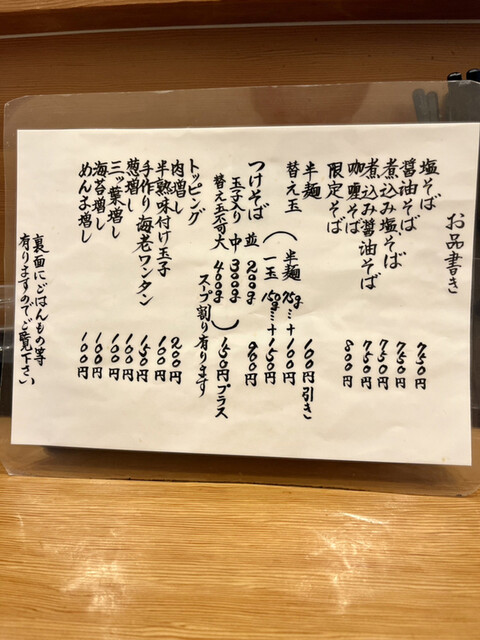 お品書き
塩そば 750円
醤油そば 750円
煮込み塩そば 750円
煮込み醤油そば 750円
咖喱そば 800円
限定そば
半麺 100円引き
替え玉 (半麺 75g…+100円
一玉 150g…+150円)
つけそば 並 200g 900円
玉子入り 中 300g
替え玉不可 大 400g 150円プラス
スープ割り有ります
トッピング
肉増し 200円
半熟味付け玉子 100円
手作り海老ワンタン 150円
葱増し 100円
三ッ葉増し 100円
海苔増し 100円
めんま増し 100円
裏面にごはんもの等
有りますのでご覧下さい